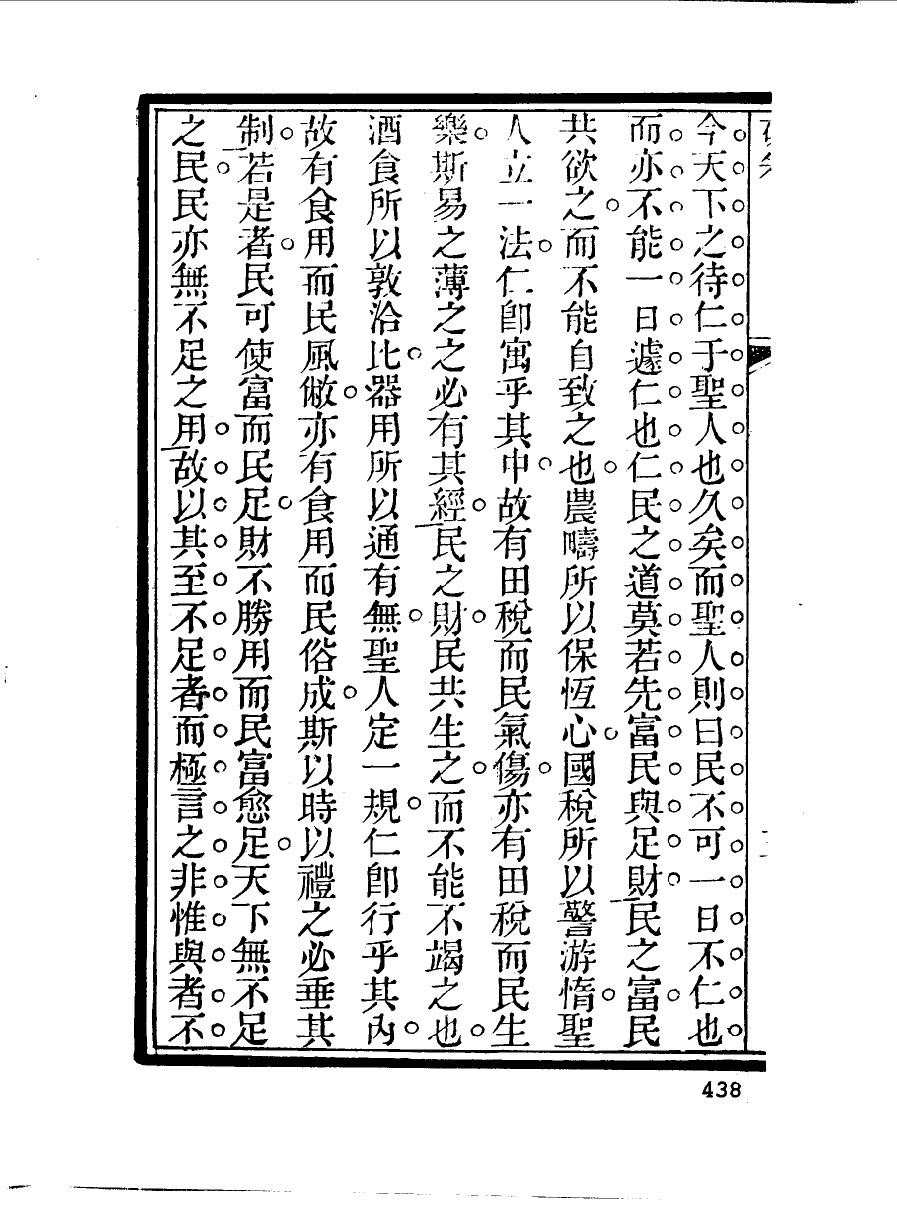 今天下之待仁于聖人也久矣而聖人則曰民不可一日不仁也
而亦不能一日遽仁也仁民之道莫若先富民與足財民之富民
共欲之而不能自致之也農疇所以保恆心國稅所以警游惰聖
人立一法仁卽寓乎其中故有田稅而民氣傷亦有田稅而民生
樂斯易之薄之之必有其經民之財民共生之而不能不竭之也
酒食所以敦洽比器用所以通有無聖人定一規仁卽行乎其內
故有食用而民風敝亦有食用而民俗成斯以時以禮之必垂其
制若是者民可使富而民足財不勝用而民富愈足天下無不足
之民民亦無不足之用故以其至不足者而極言之非惟與者不
438